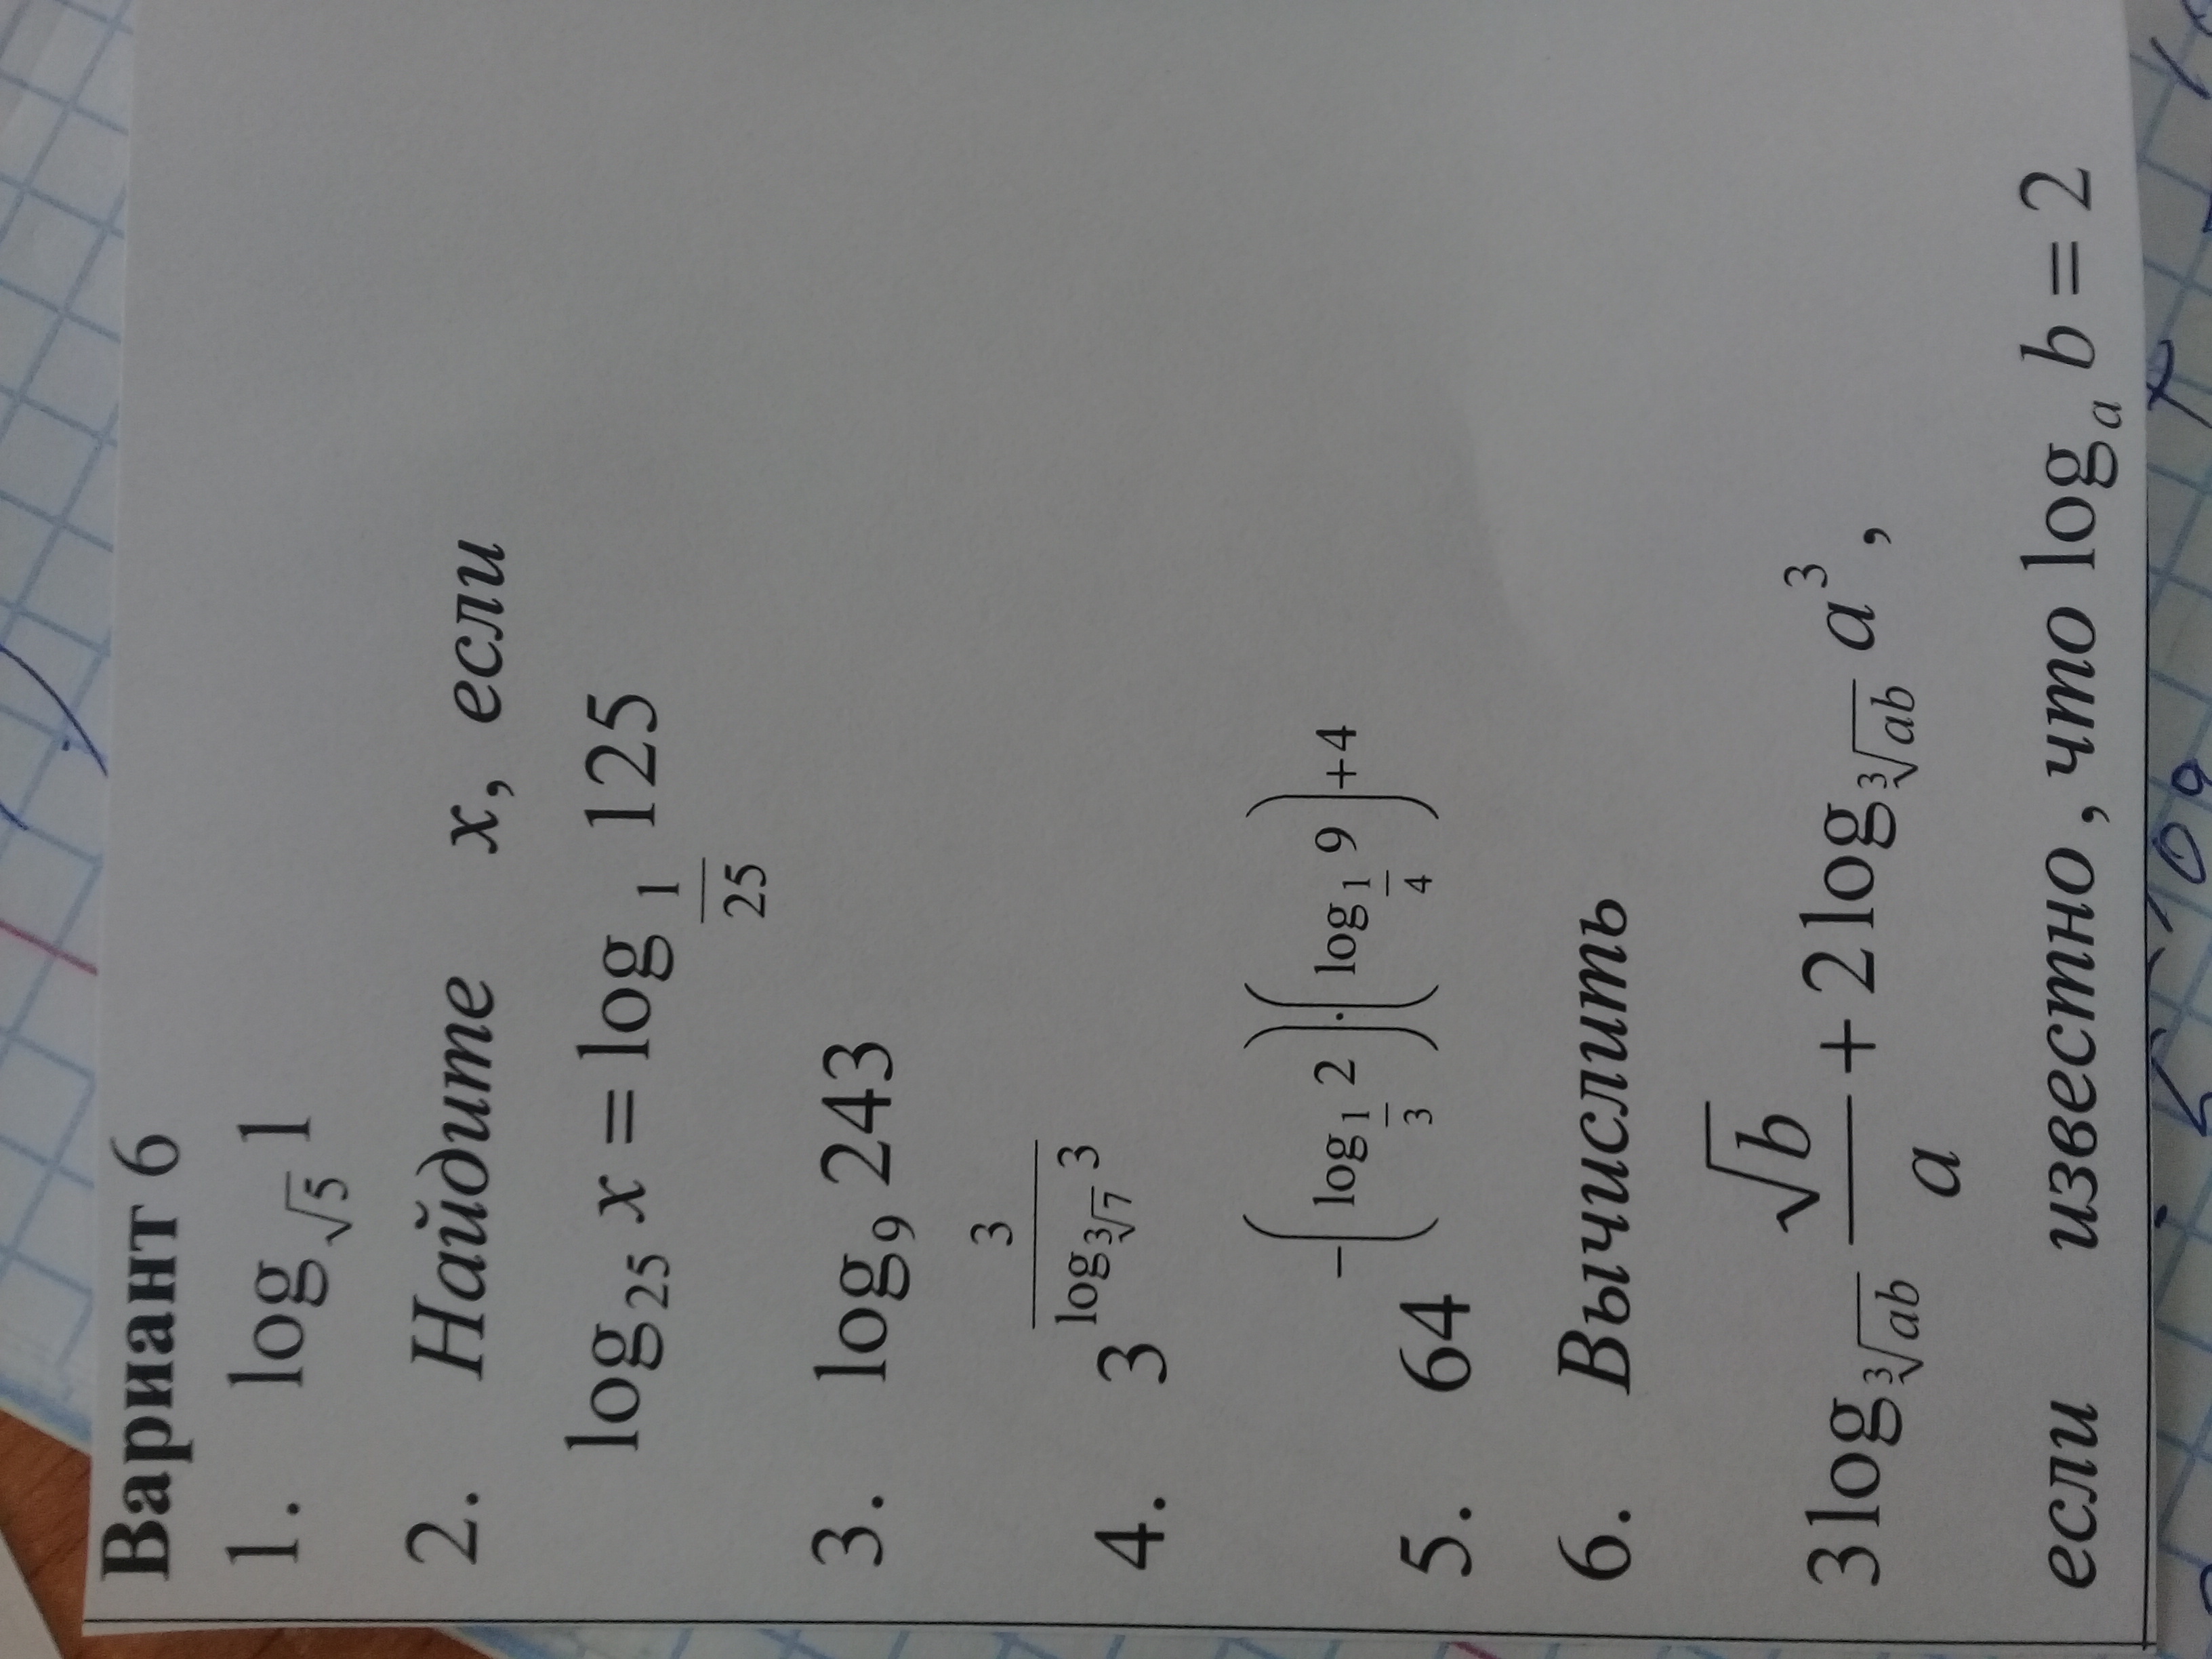 Вариант 6
1. log_{√5} 1
2. Найдите x, если
log_{25} x = log_{1/25} 125
3. log_9 243
4. 3^{3/log_{∛7} 3}
5. 64^{-(log_{1/3} 2)·(log_{1/4} 9)+4}
6. Вычислить
3 log_{∛(ab)} √b/a + 2 log_{∛(ab)} a^3 ,
если известно , что log_a b = 2